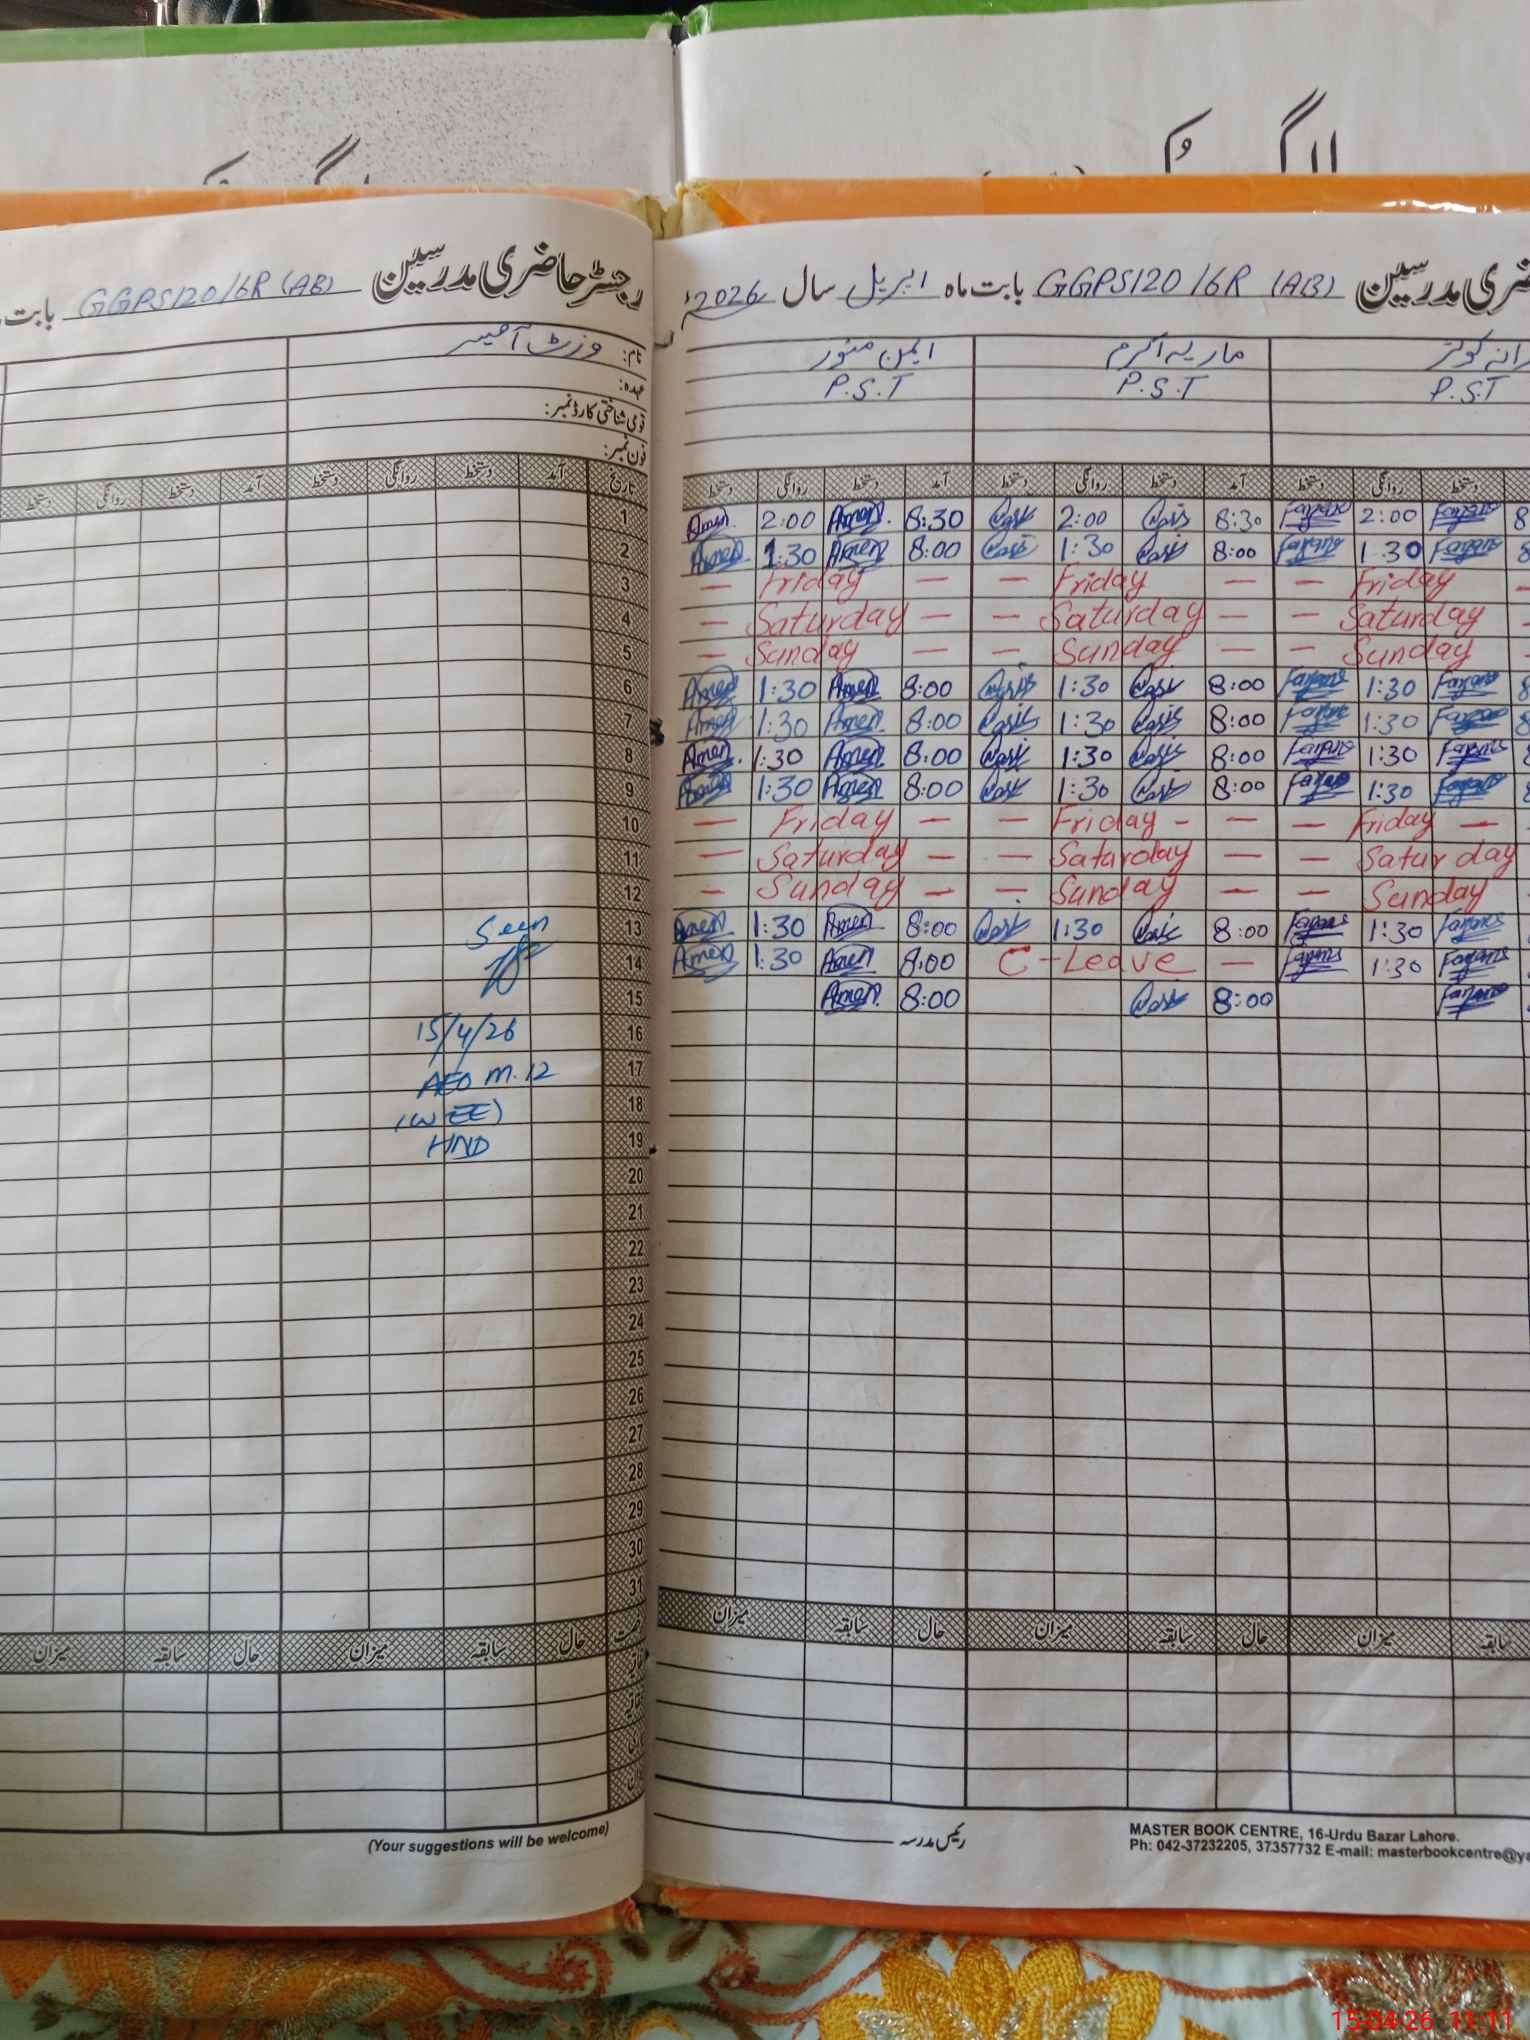 رجسٹر حاضری مدرسین GGPS 120/6R (AB) بابت
نام: وزٹ آفیسر
عہدہ:
قومی شناختی کارڈ نمبر:
فون نمبر:
تاریخ آمد دستخط روانگی دستخط آمد دستخط روانگی دستخط
1
2
3
4
5
6
7
8
9
10
11
12
13 Seen
14
15
16 15/4/26
17 AEO M.12
18 (WEE)
19 HND
20
21
22
23
24
25
26
27
28
29
30
31
حال سابقہ میزان حال سابقہ میزان
(Your suggestions will be welcome)
مدرسین GGPS 120/6R (AB) بابت ماہ اپریل سال 2026ء
ماریہ اکرم ایمن منور
P.S.T P.S.T P.S.T
دستخط روانگی دستخط آمد دستخط روانگی دستخط آمد دستخط روانگی دستخط
Amen 2:00 Amen 8:30 2:00 8:30 2:00 8
Amen 1:30 Amen 8:00 1:30 8:00 1:30 8
— Friday — — Friday — — Friday —
— Saturday — — Saturday — — Saturday —
— Sunday — — Sunday — — Sunday —
Amen 1:30 Amen 8:00 1:30 8:00 1:30 8
Amen 1:30 Amen 8:00 1:30 8:00 1:30 8
Amen 1:30 Amen 8:00 1:30 8:00 1:30 8
Amen 1:30 Amen 8:00 1:30 8:00 1:30 8
— Friday — — Friday - — — Friday —
— Saturday — — Saturday — — Saturday
— Sunday — — Sunday — — Sunday
Amen 1:30 Amen 8:00 1:30 8:00 1:30
Amen 1:30 Amen 8:00 C-Leave — 1:30
Amen 8:00 8:00
میزان سابقہ حال میزان سابقہ حال میزان سابقہ
رئیس مدرسہ
MASTER BOOK CENTRE, 16-Urdu Bazar Lahore.
Ph: 042-37232205, 37357732 E-mail: masterbookcentre@ya
15-04-26 11:11